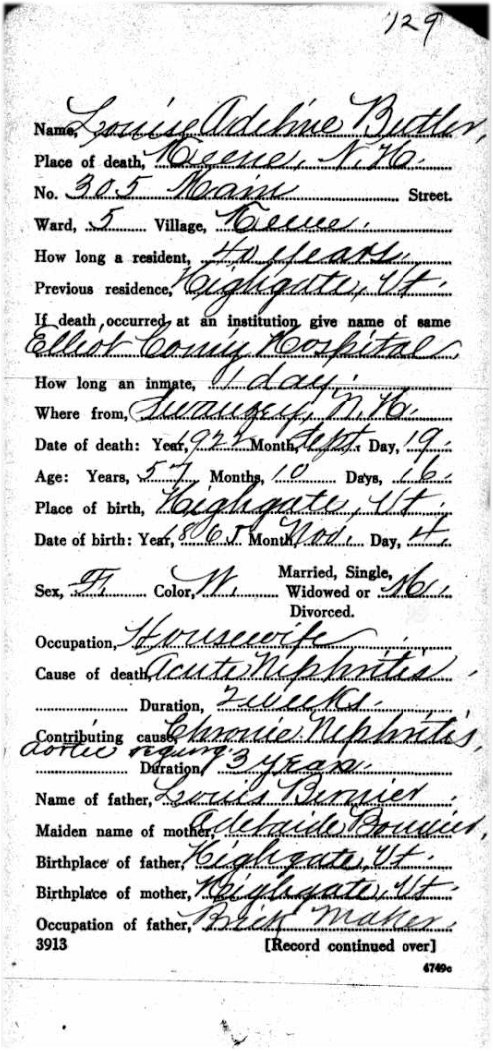 129
Name, Louise Adeline Butler,
Place of death, Keene, N.H.
No. 305 Main Street.
Ward, 5 Village, Keene.
How long a resident, 40 years.
Previous residence, Highgate, Vt.
If death occurred at an institution give name of same
Elliot Comty Hospital,
How long an inmate, 1 day.
Where from, Swanzey, N.H.
Date of death: Year, 922 Month, Sept. Day, 19.
Age: Years, 57 Months, 10 Days, 16.
Place of birth, Highgate, Vt.
Date of birth: Year, 1865 Month, Nov. Day, 4.
Married, Single,
Sex, F. Color, W. Widowed or M.
Divorced.
Occupation, Housewife
Cause of death, Acute Nephritis,
Duration, 2 weeks.
Contributing cause, Chronic Nephritis,
aortic regurg.
Duration, 3 years.
Name of father, Louis Bernier.
Maiden name of mother, Adelaide Bouvier,
Birthplace of father, Highgate, Vt.
Birthplace of mother, Highgate, Vt.
Occupation of father, Brick maker.
3913 [Record continued over]
4749c